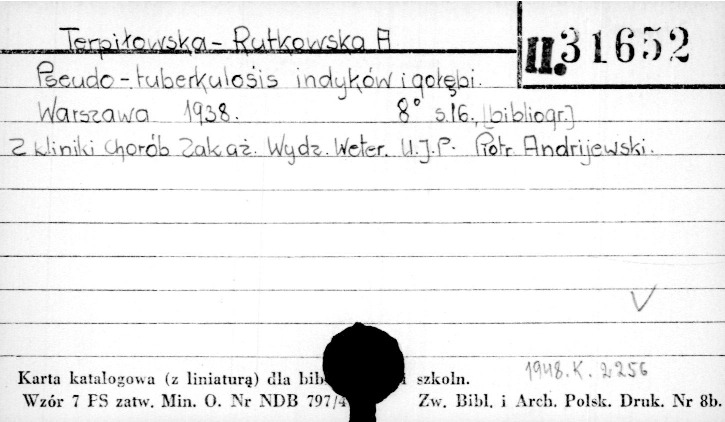 Terpiłowska-Rutkowska A
II. 31652
Pseudo-tuberkulosis indyków i gołębi.
Warszawa 1938. 8° s.16, [bibliogr.]
Z kliniki Chorób Zakaź. Wydz. Weter. U.J.P. Piotr Andrijewski.
V
1948.K.2256
Karta katalogowa (z liniaturą) dla szkoln.
Wzór 7 PS zatw. Min. O. Nr NDB 797/4 Zw. Bibl. i Arch. Polsk. Druk. Nr 8b.